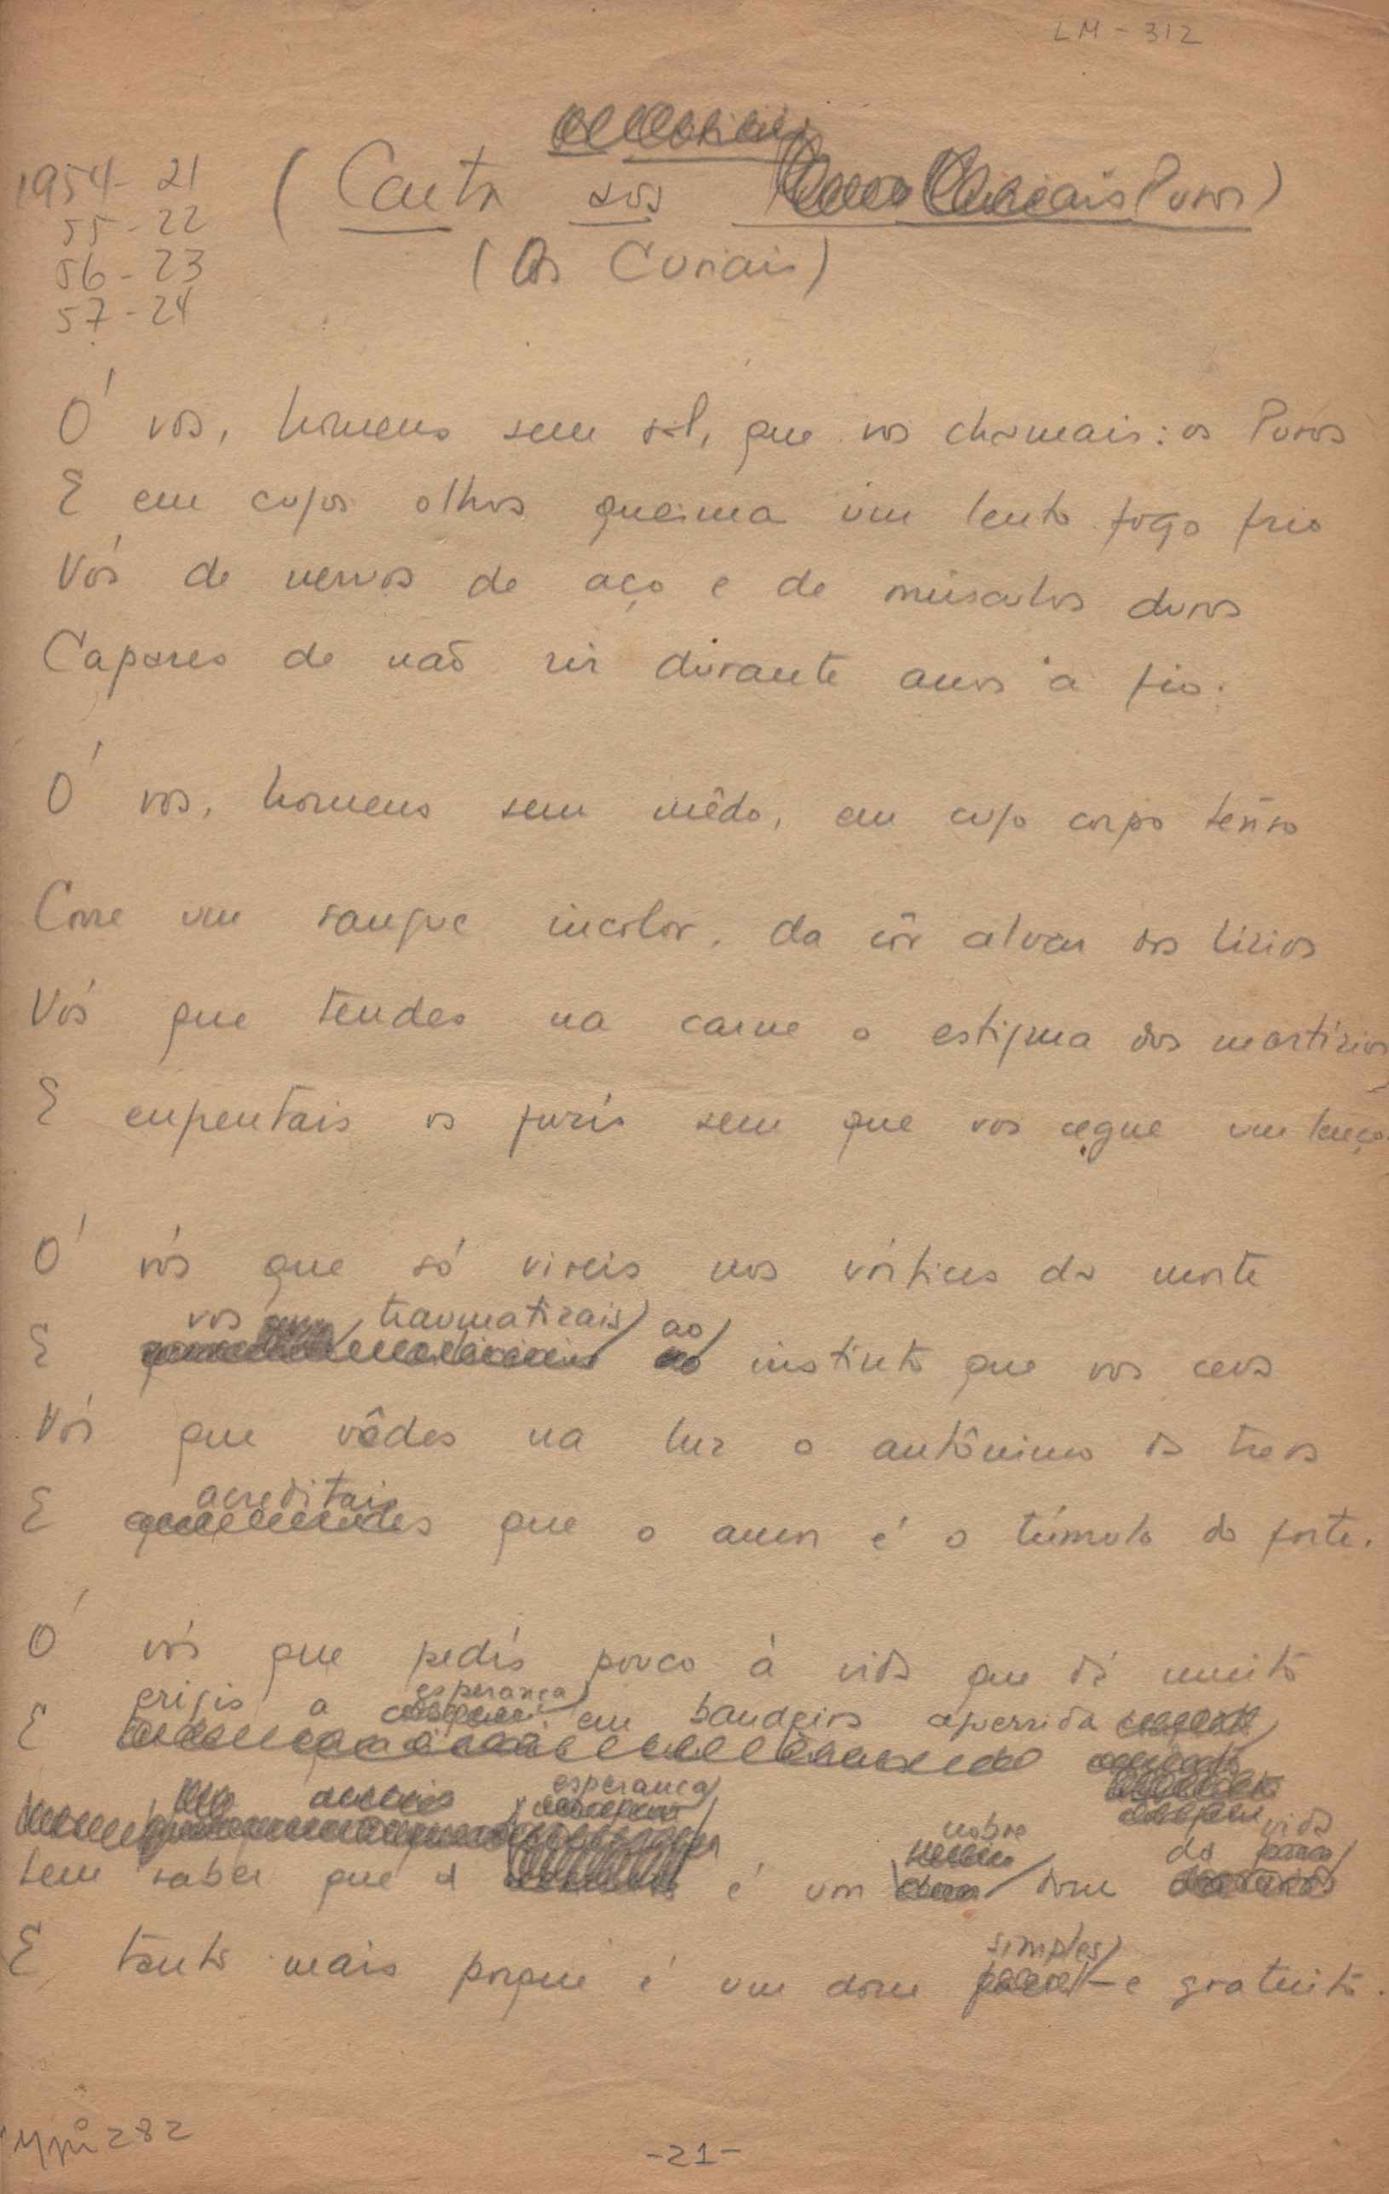 LM - 312
1954 - 21
55 - 22
56 - 23
57 - 24
(Carta aos Puros)
(Os Curiais)
Ó vós, homens sem sol, que vos chamais: os Puros
E em cujos olhos queima um lento fogo frio
Vós de nervos de aço e de músculos duros
Capazes de não rir durante anos a fio.
Ó vós, homens sem mêdo, em cujo corpo tenso
Corre um sangue incolor, da côr alvar dos lírios
Vós que tendes na carne o estigma dos martírios
E enfrentais os fuzis sem que vos cegue um lenço.
Ó vós que só viveis nos vórtices da morte
E vos traumatizais ao instinto que vos ceva
Vós que vêdes na luz o antônimo da treva
E acreditais que o amor é o túmulo do forte.
Ó vós que pedís pouco à vida que dá muito
E erigis a esperança em bandeira aguerrida
Sem saber que a esperança é um nobre dom da vida
E tanto mais porque é um dom simples e gratuito.
282
-21-